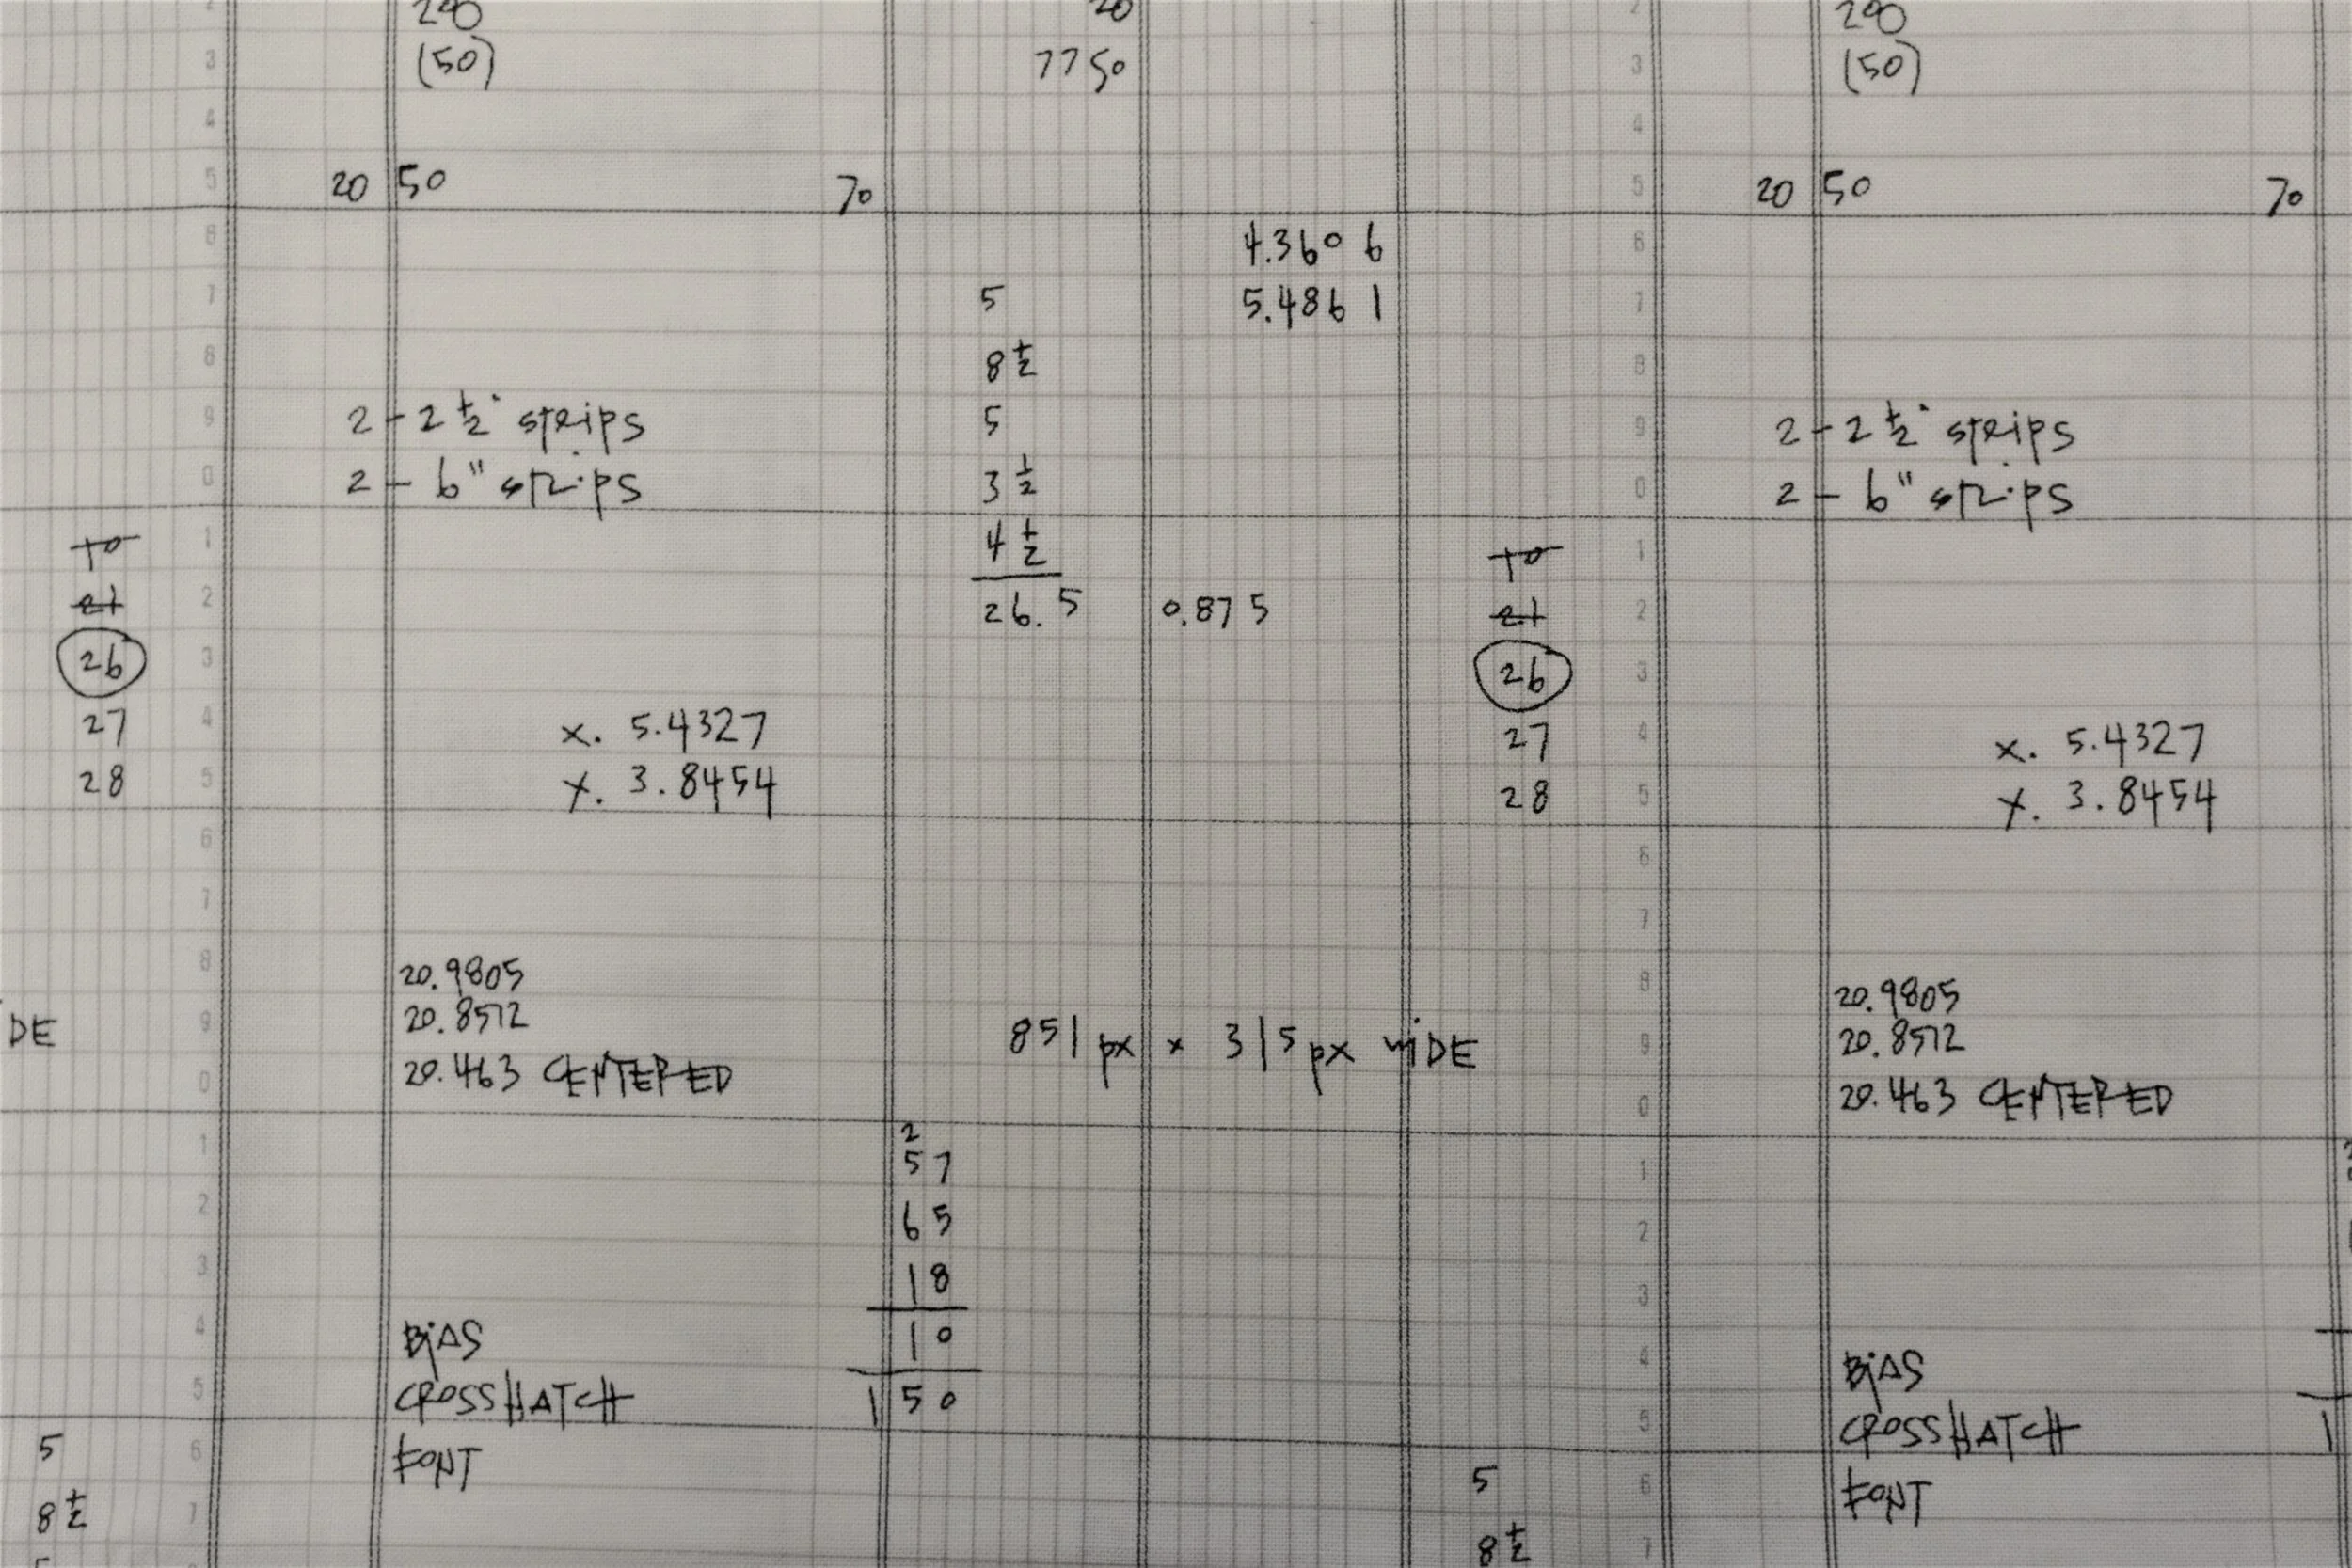 200
(50)
20
7750
200
(50)
20 50 70
20 50 70
4.3606
5.4861
5
8 1/2
5
3 1/2
4 1/2
26.5 0.875
2 - 2 1/2" strips
2 - 6" strips
2 - 2 1/2" strips
2 - 6" strips
26
27
28
26
27
28
x. 5.4327
y. 3.8454
x. 5.4327
y. 3.8454
20.9805
20.8572
20.463 CENTERED
DE
851 px x 315 px wiDE
20.9805
20.8572
20.463 CENTERED
2
57
65
18
10
150
BiAS
CROSSHATCH
FONT
BiAS
CROSSHATCH
FONT
5
8 1/2
5
8 1/2